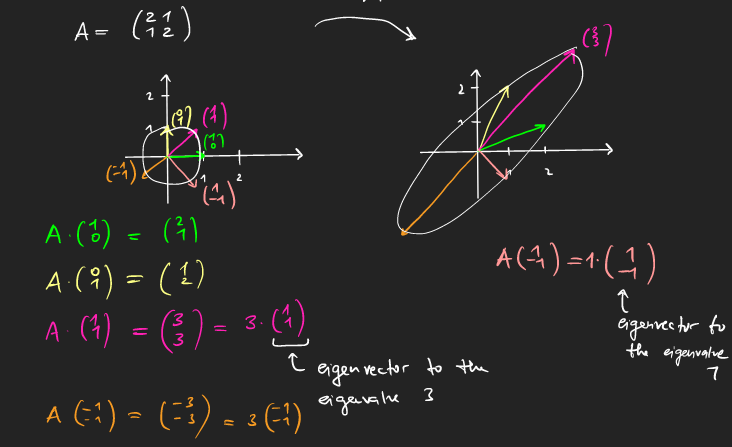 A = (2 1
1 2)
(3
3)
2
1
(0
1)
(1
1)
(1
0)
(-1
-1)
1
2
(1
-1)
2
1
1
2
A · (1
0) = (2
1)
A · (0
1) = (1
2)
A · (1
1) = (3
3) = 3 · (1
1)
eigenvector to the
eigenvalue 3
A (-1
-1) = (-3
-3) = 3 (-1
-1)
A (1
-1) = 1 · (1
-1)
eigenvector to
the eigenvalue
1